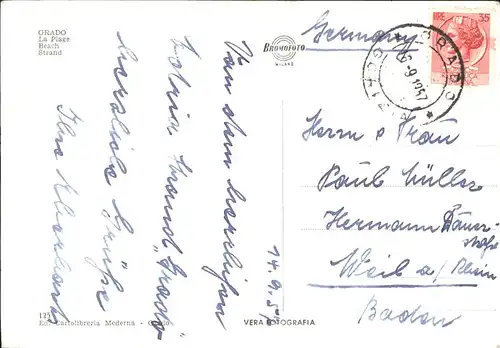 GRADO
La Plage
Beach
Strand
BROMOFOTO
MILANO
Germany
LIRE 35
GRADO
GORIZIA
-9 1957
Von dem herrlichen
Adria Strand "Grado"
herzliche Grüße
Ihre
14.9.57
Herrn u Frau
Paul Müller
Hermann Däuer-
straße
Weil a/ Rhein
Baden
Ed. Cartolibreria Moderna - Grado
VERA FOTOGRAFIA